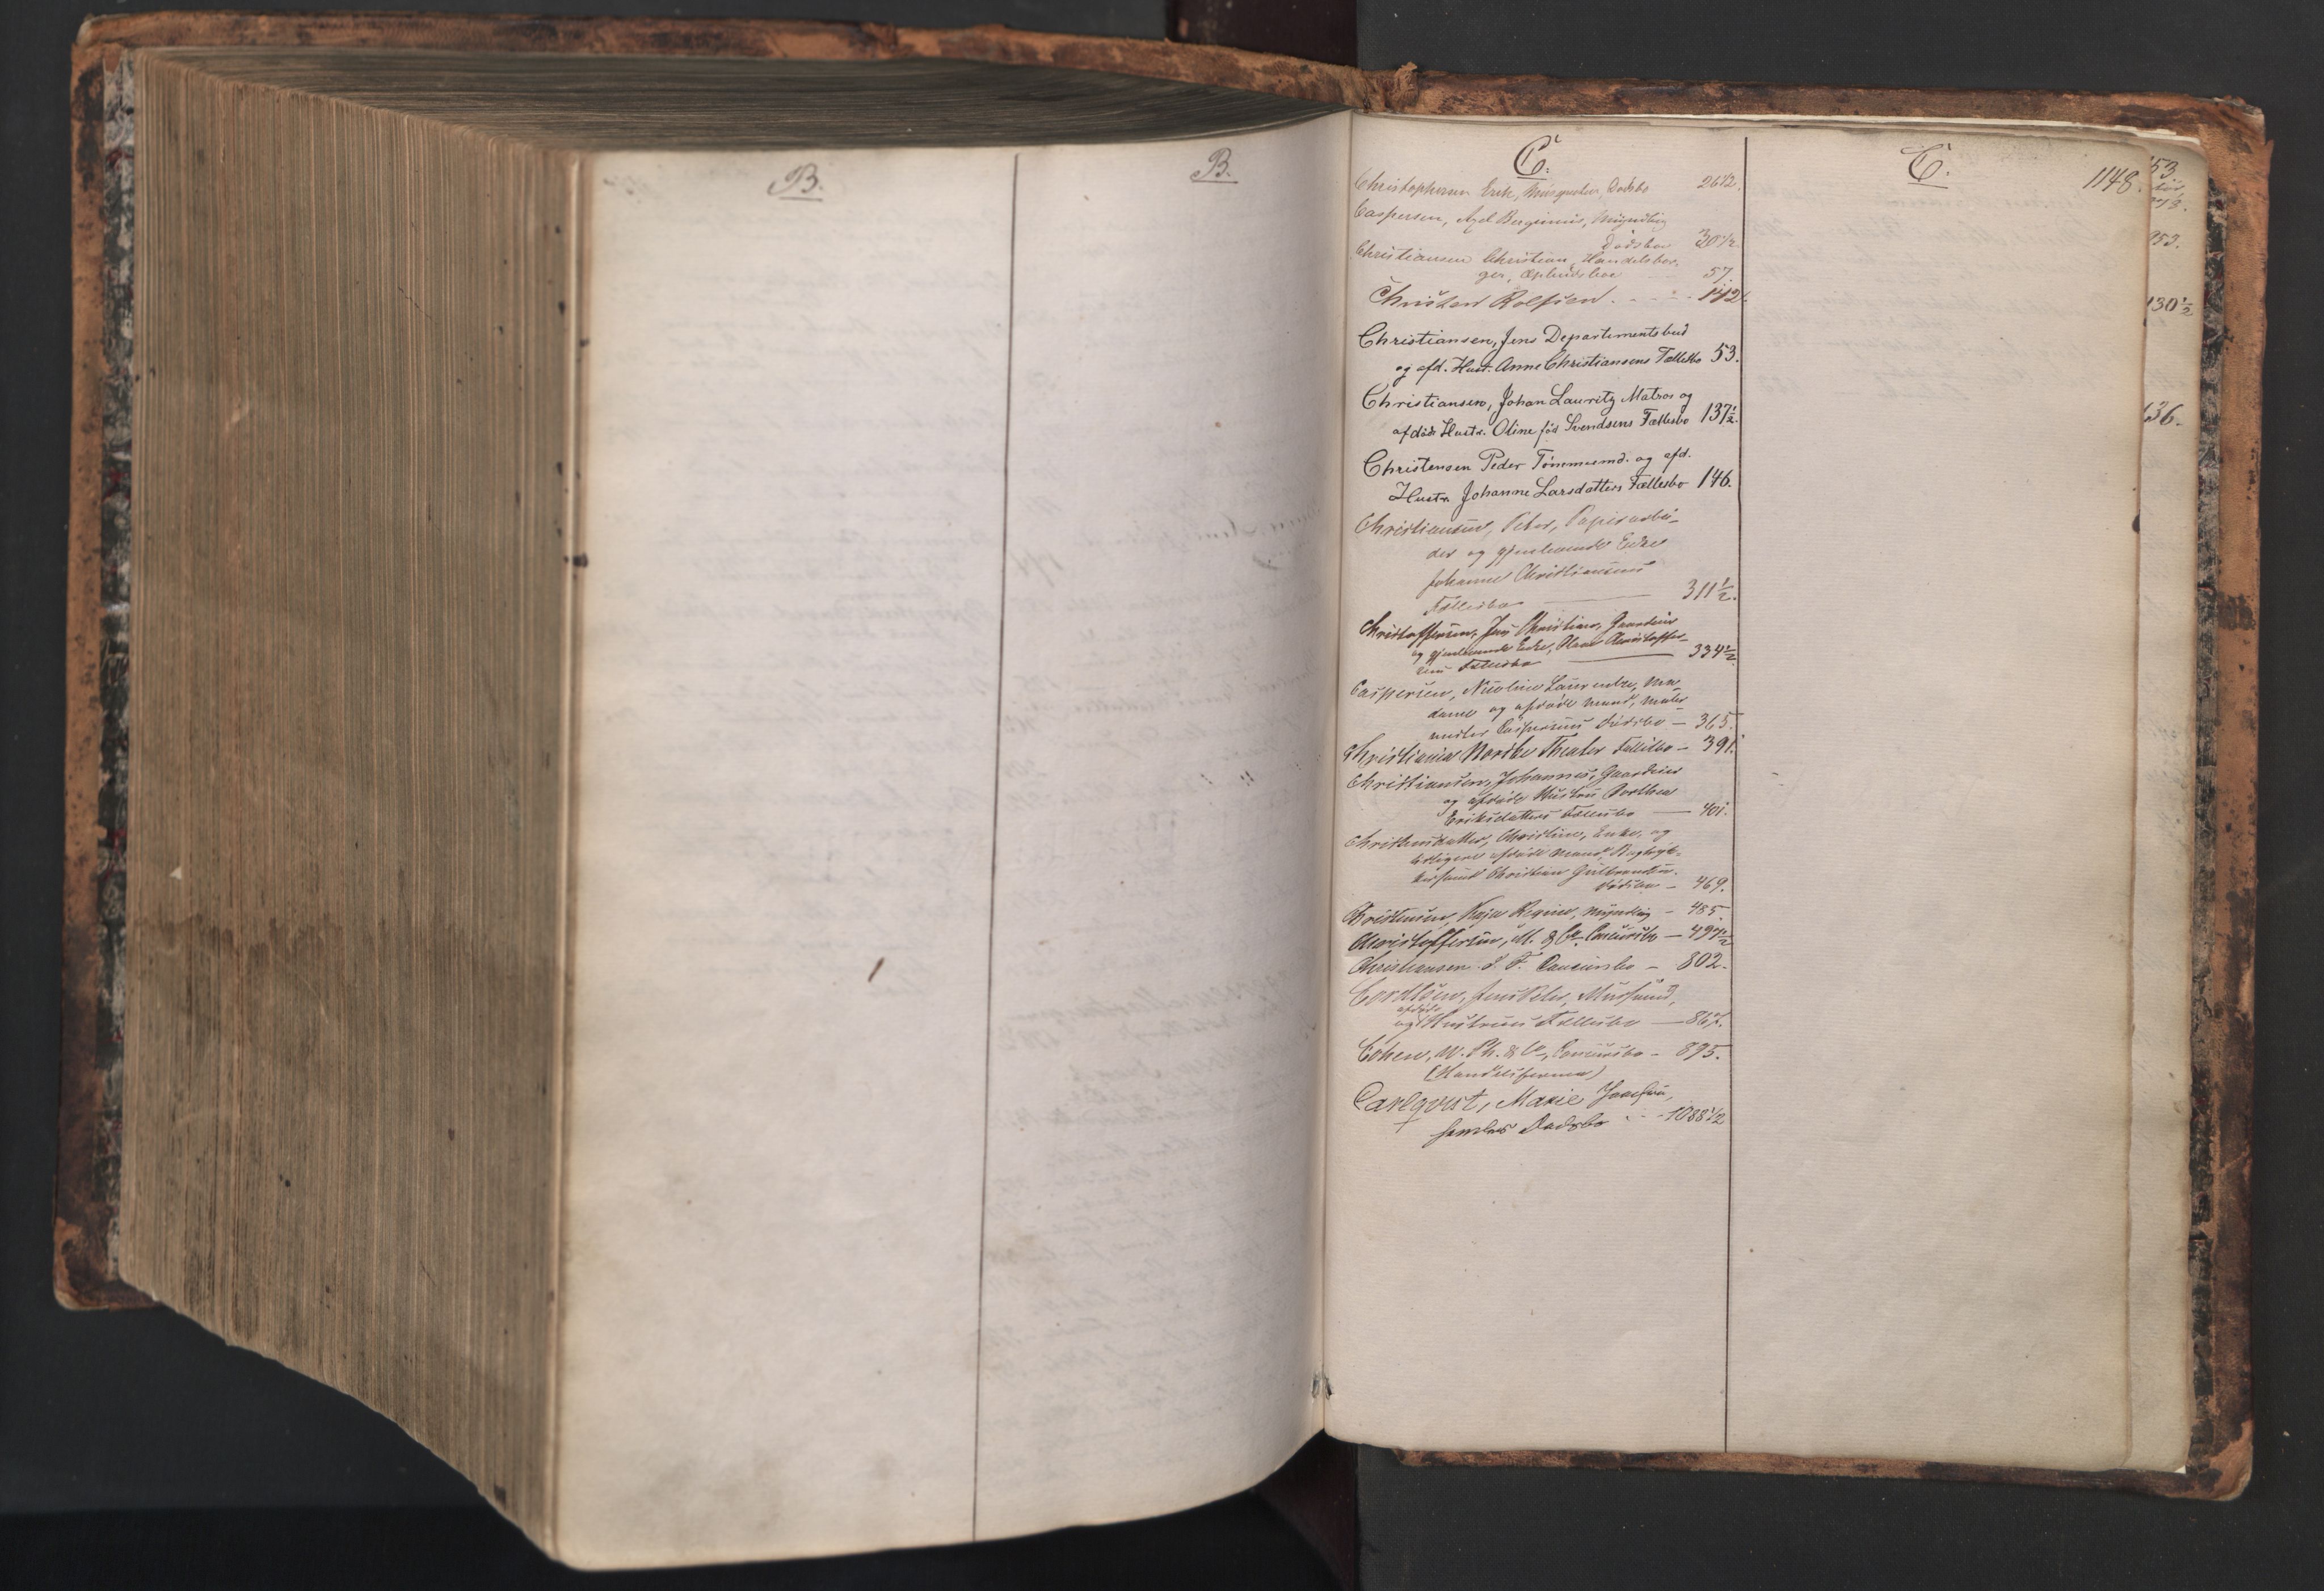 B.
B.
C.
C.
1148.
Christophersen Erik, Dødsbo 26 1/2.
Caspersen, Axel Berginius, Myndling
Dødsboe 30 1/2.
Christiansen Christian, Handelsbor-
ger, Opbudsboe 57.
Christen Rolfsen. - - - - 142.
Christiansen, Jens Departementsbud
og afd. Hust. Anne Christiansens Fællesbo 53.
Christiansen, Johan Lauritz Matros og
afdøde Hustr. Oline fød Svendsens Fællesbo 137 1/2.
Christensen Peder Tømmermd. og afd.
Hustr. Johanne Larsdatters Fællesbo 146.
Christiansen, Peter, Papirarbei-
der og gjenlevende Enke
Johanne Christiansens
Fællesbo 311 1/2.
Christoffersen, Jens Christian, Gaardeier
og gjenlevende Enke, Christoffer-
sens Fællesbo 334 1/2.
Caspersen, Nicoline Laurentze, Ma-
dame og afdøde Mand, Maler
Caspersens Dødsbo - 365.
Christiania Norske Theater Fallitbo - 391.
Christiansen, Johannes, Gaardeier
og afdøde Hustru Dorthea
Eriksdatters Fællesbo - 401.
Christensdatter, Christine, Enke, og
tidligere afdøde Mand,
Christian Gulbrandsen.
Dødsbo - 469.
Christensen, Kaja Regine, Myndling - 485.
Christoffersen, M. & Co. Concursbo - 494 1/2
Christiansen Concursbo - 802.
Cordtsen, Jens Peter, Muursvend,
og afdøde Hustrues Fællesbo - 867.
Cohen, W. Ph. & Co, Concursbo - 895.
(Handelsfirma)
Carlqvist, Marie Josefine,
Dødsbo - - - 1088 1/2
53
253.
130 1/2
136.